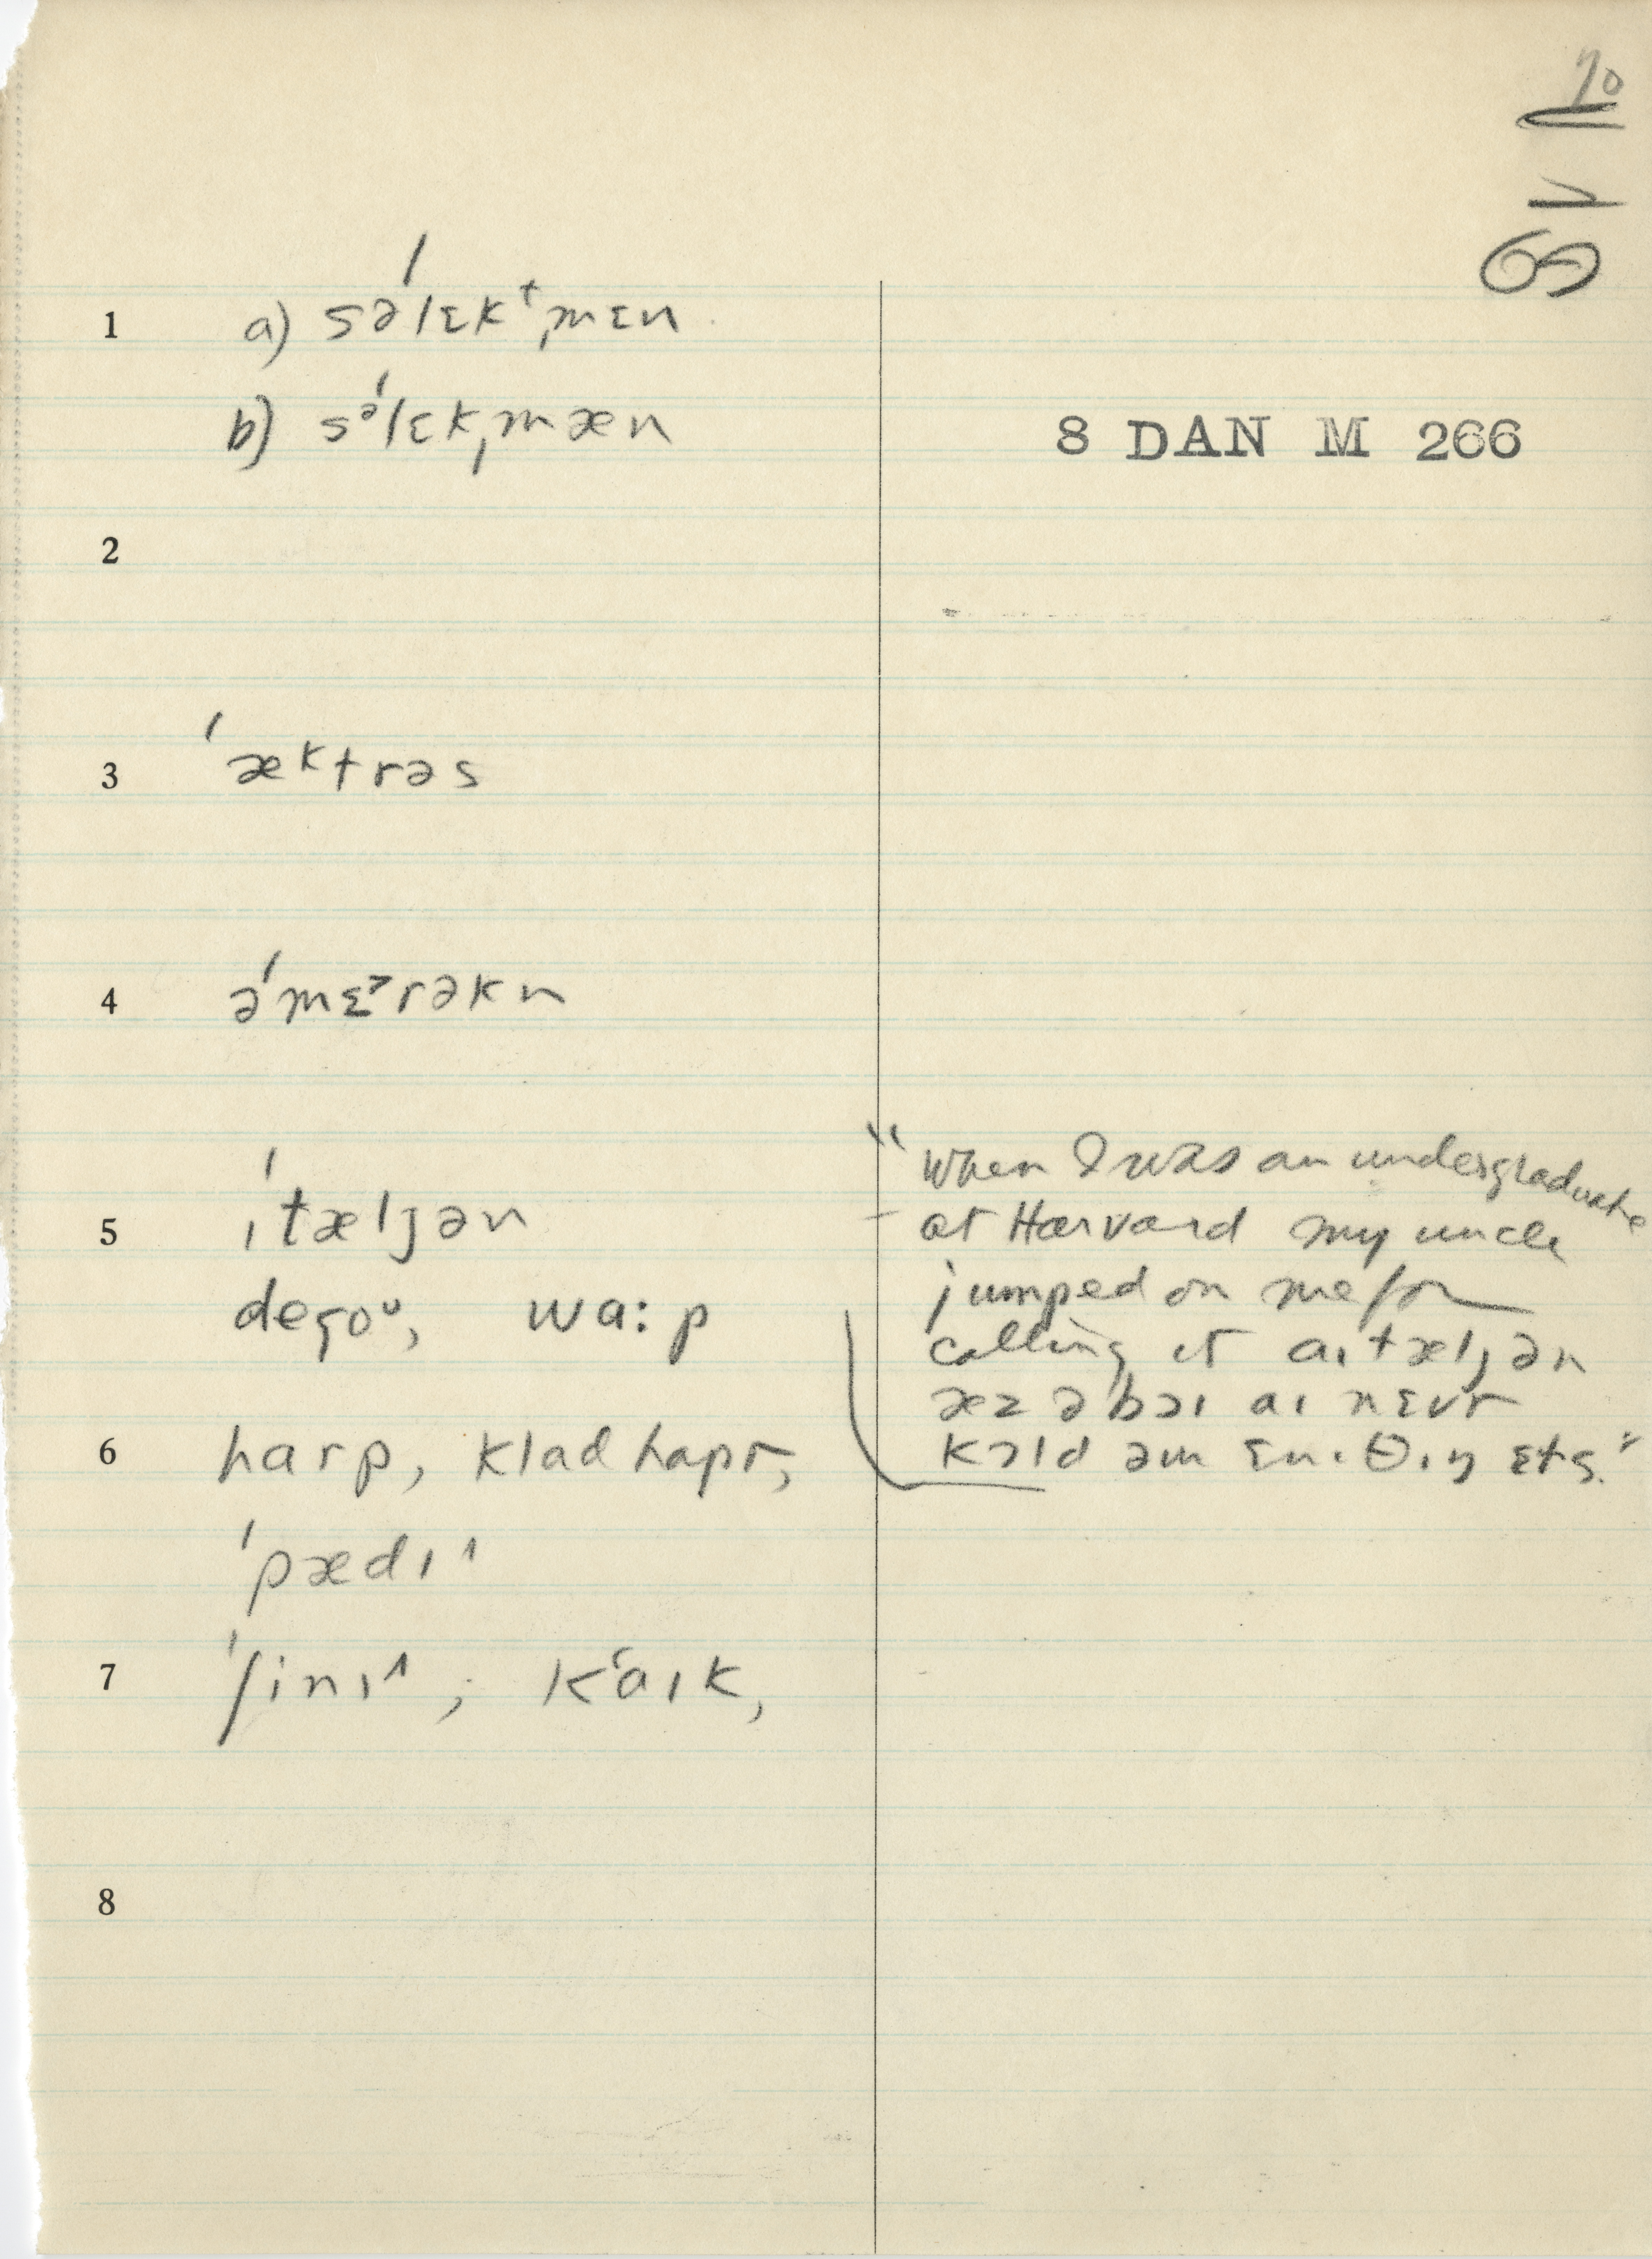 70
69
1 a) səˈlɛkᵗˌmɛn
b) sᵊˈlɛkˌmæn
8 DAN M 266
2
3 ˈæktrəs
4 əˈmɛ˃rəkn
5 ɪˈtæljən
degoᵘ, wa:p
"When I was an undergraduate
at Harvard my uncle
jumped on me for
calling it aɪtæljən
æz ə bɔɪ aɪ nɛvr
kɔld əm ɛnɪθɪŋ ɛts."
6 harp, kladhapr,
ˈpædɪ^
7 ˈʃinɪ^, kʻaɪk,
8